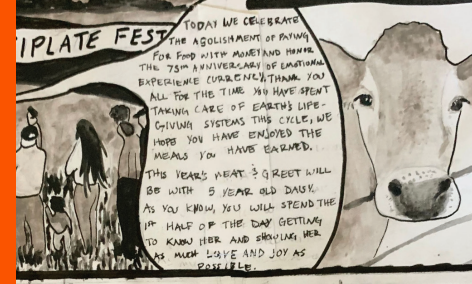 IPLATE FEST
TODAY WE CELEBRATE
THE ABOLISHMENT OF PAYING
FOR FOOD WITH MONEY AND HONOR
THE 75TH ANNIVERSARY OF EMOTIONAL
EXPERIENCE CURRENCY, THANK YOU
ALL FOR THE TIME YOU HAVE SPENT
TAKING CARE OF EARTH'S LIFE-
GIVING SYSTEMS THIS CYCLE, WE
HOPE YOU HAVE ENJOYED THE
MEALS YOU HAVE EARNED.
THIS YEAR'S MEAT & GREET WILL
BE WITH 5 YEAR OLD DAISY.
AS YOU KNOW, YOU WILL SPEND THE
1ST HALF OF THE DAY GETTING
TO KNOW HER AND SHOWING HER
AS MUCH LOVE AND JOY AS
POSSIBLE.